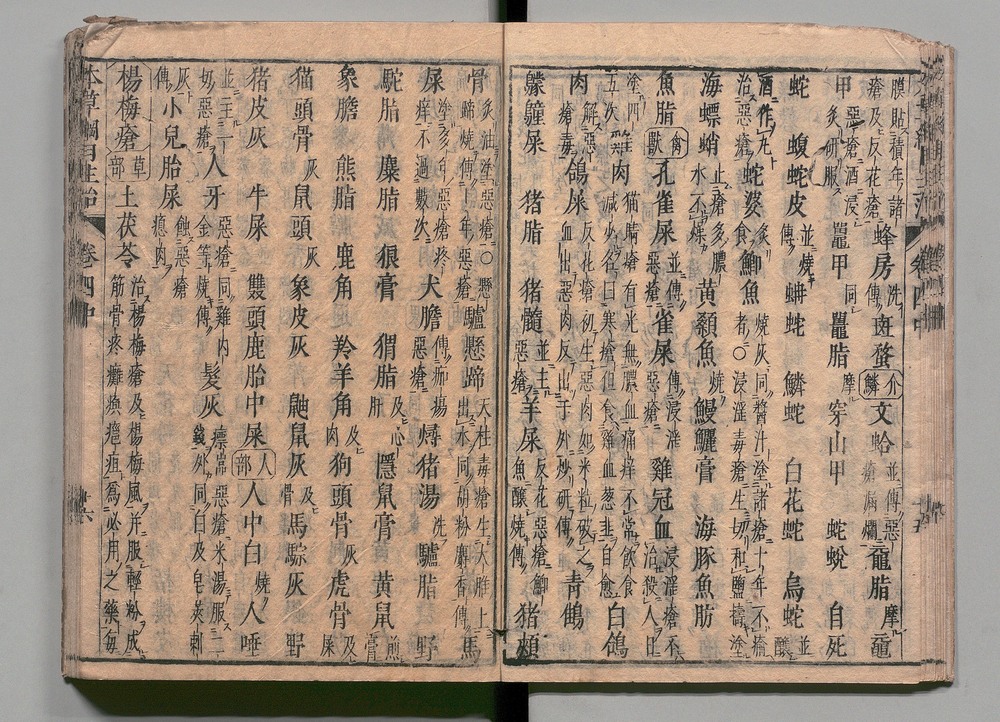 膜貼積年諸瘡及反花瘡蜂房洗傳斑蝥介鱗文蛤並傳惡瘡滿爛龜脂摩黿
甲惡瘡酒浸炙研服黿甲同鼉脂摩穿山甲 蛇蛻 自死
蛇 蝮蛇皮並燒傳蚺蛇 鱗蛇 白花蛇 烏蛇並釀
酒作丸治惡瘡蛇婆炙食鯽魚燒灰同醬汁塗諸瘡十年不瘥者○浸淫毒瘡生切和鹽擣塗
海螵蛸止瘡多膿水不燥黃顙魚燒鰻鱺膏 海豚魚肪
魚脂禽獸孔雀屎並傳惡瘡雀屎傳浸淫惡瘡雞冠血浸淫瘡不治殺人日
塗四五次雞肉猫睛瘡有光無膿血痛痒不常飲食減少名曰寒瘡但食雞魚葱韭自愈白鴿
肉解瘡毒鴿屎反花瘡初生惡肉如米粒破之血出惡肉反出于外炒研傳青鶴
屎 猪脂 猪髓並主惡瘡羊屎反花惡瘡鯽魚釀燒傳猪頰
骨炙油塗惡瘡○懸蹄燒傳十年惡瘡驢懸蹄天柱毒瘡生大椎上出水同胡粉麝香傳馬
屎塗多年惡瘡疼痒不過數次犬膽傳痂瘍惡瘡燖猪湯洗驢脂 野
駝脂 麋脂 狼膏 猬脂及心肝隱鼠膏 黃鼠煎膏
象膽 熊脂 鹿角 羚羊角及肉狗頭骨灰虎骨及屎
猫頭骨灰鼠頭灰象皮灰 鼬鼠灰及骨馬騣灰 野
猪皮灰 牛屎 雙頭鹿胎中屎人部人中白燒人唾
並主一切惡瘡人牙惡瘡同雞內金等燒傳髮灰瘭當惡瘡米湯服二錢外同白及皂莢刺
灰傳小兒胎屎蝕惡瘡瘜肉
楊梅瘡草部土茯苓治楊梅瘡及楊梅風并服輕粉成筋骨疼癱瘓癰疽爲必用之藥每
本草綱目主治 卷四中 十六